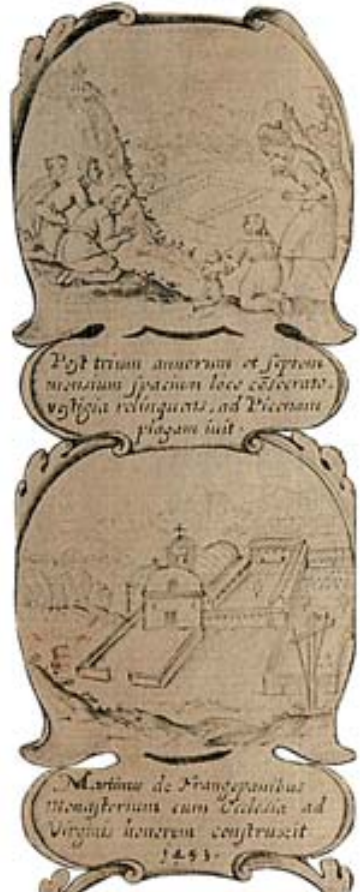 Post trium annorum et septem
mensium spacium loco cõsecrato
vestigia relinquens, ad Picenam
plagam iuit.
Martinus de Frangepanibus
monasterium cum Ecclesia ad
Virginis honorem construxit
1453.